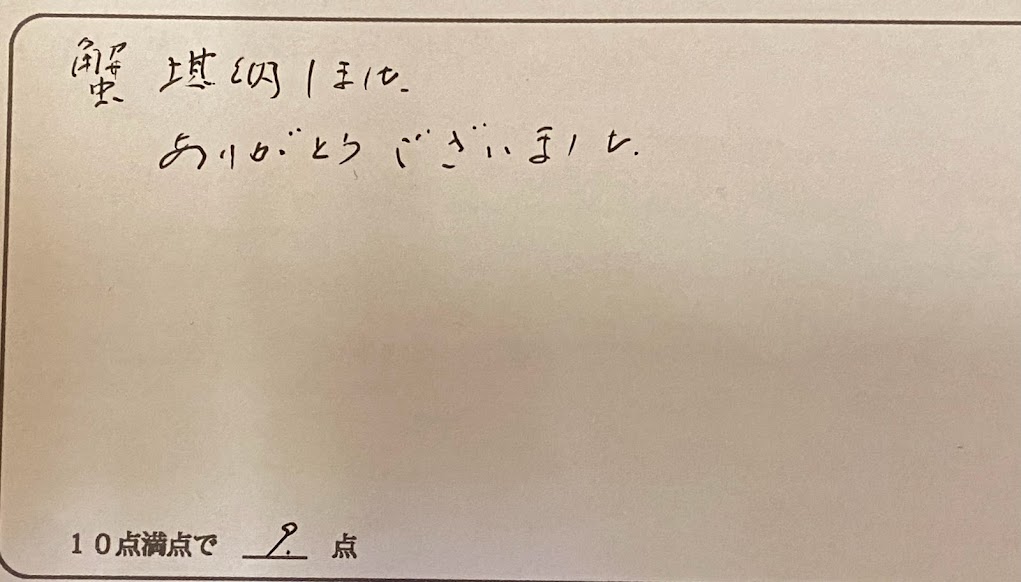 蟹 堪納しました.
ありがとうございました.
10点満点で 9. 点